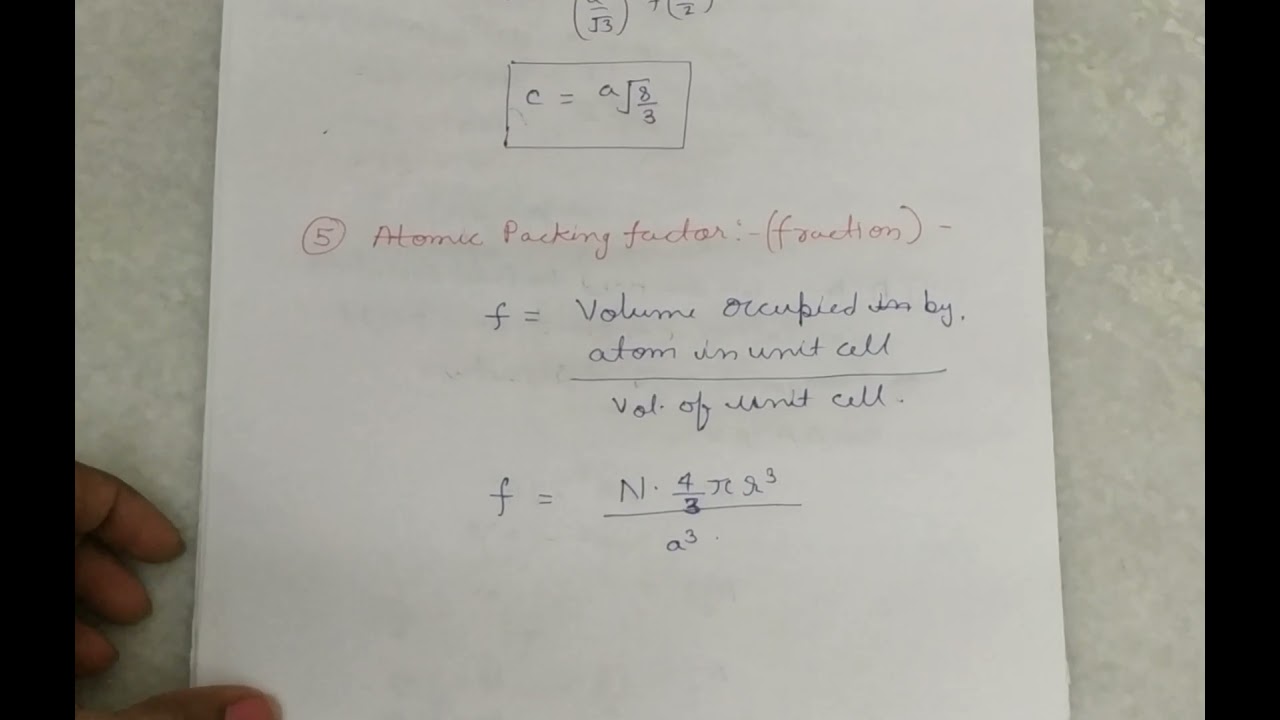 (a/√3) + (/2)
c = a√8/3
⑤ Atomic Packing factor:-(fraction) -
f = Volume occupied in by.
atom in unit cell
Vol. of unit cell.
f = N. 4/3 π r³
a³.